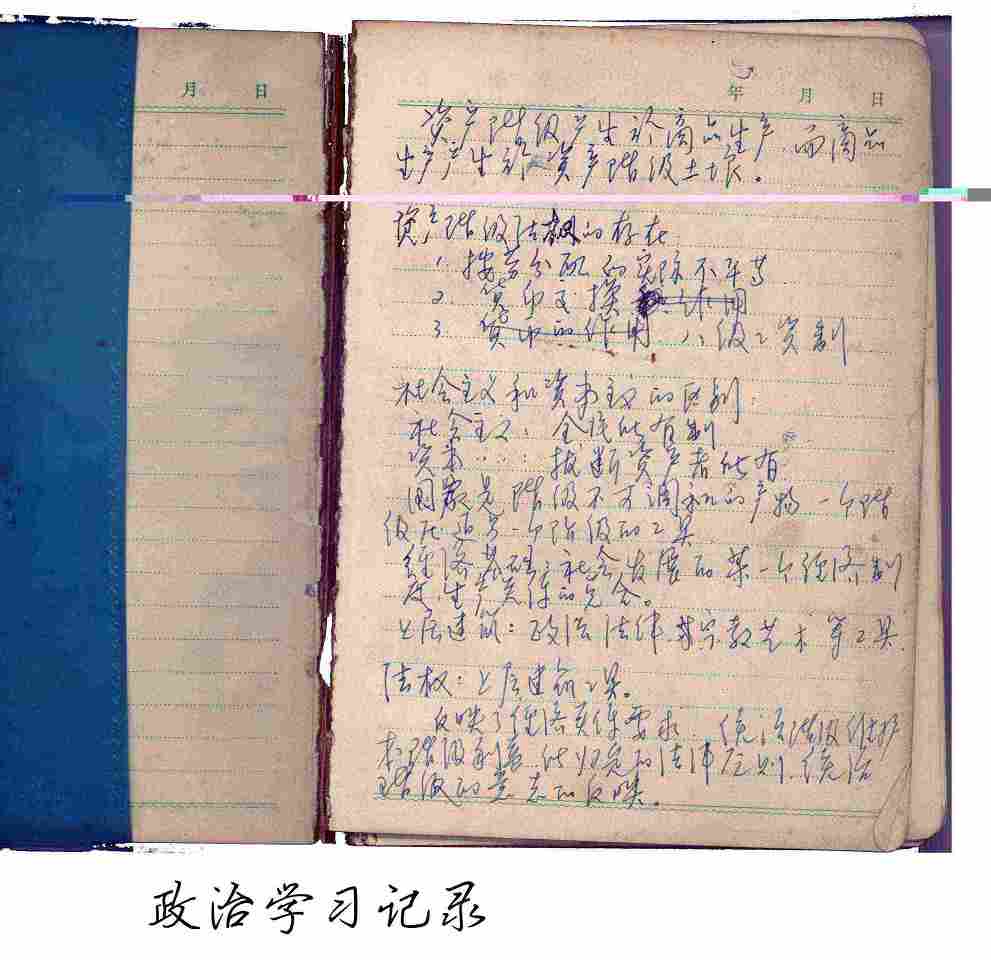 月 日
年 月 日
资产阶级产生於商品生产，而商品
生产产生於资产阶级土壤。
资产阶级法权的存在
1. 按劳分配的实际不平等
2. 货币交换 作用
3. 货币的作用 八级工资制
社会主义和资本主义的区别：
社会主义：全民所有制
资本……：垄断资产者所有
国家是阶级不可调和的产物 一个阶
级压迫另一个阶级的工具
经济基础：社会发展的某一个经济制
度生产关系的总合。
上层建筑：政治 法律 宗教艺术等工具.
法权：上层建筑工具。
反映了经济关系要求 统治阶级维护
本阶级利益，所规定的法律原则，统治
阶级的意志的反映。
政治学习记录